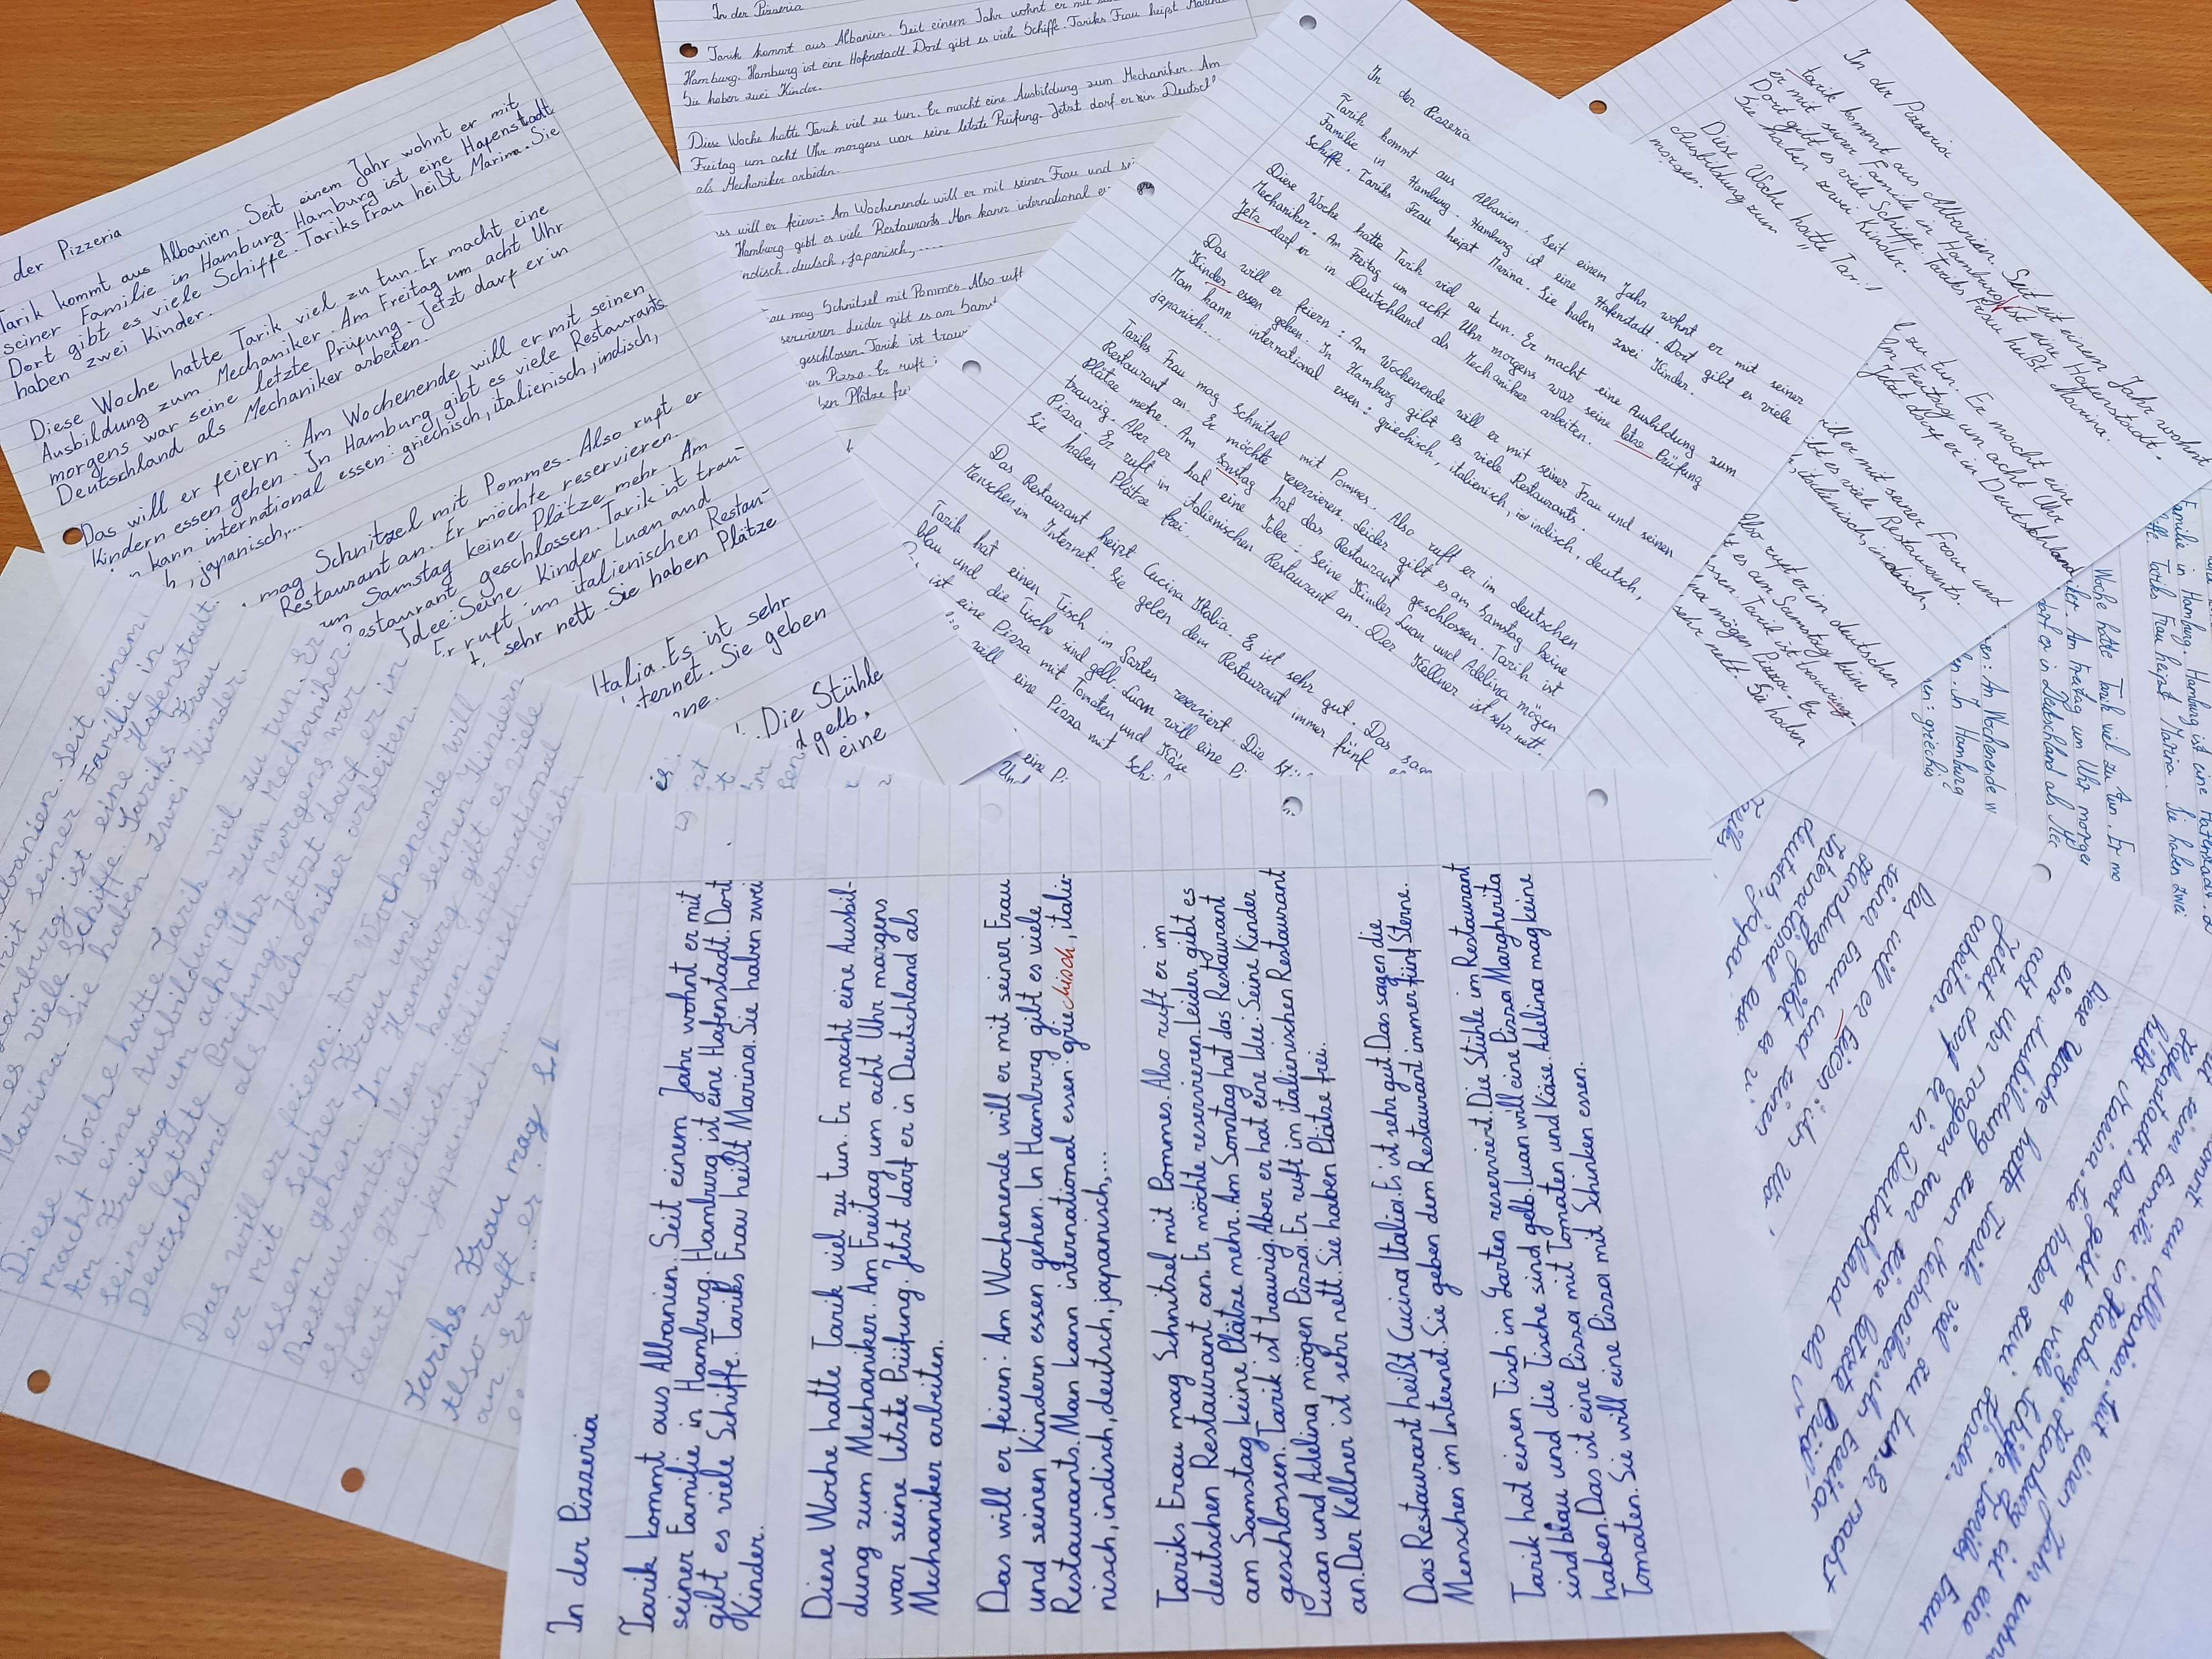 der Pizzeria
Tarik kommt aus Albanien. Seit einem Jahr wohnt er mit
seiner Familie in Hamburg. Hamburg ist eine Hafenstadt
Dort gibt es viele Schiffe. Tariks Frau heißt Marina. Sie
haben zwei Kinder.
Diese Woche hatte Tarik viel zu tun. Er macht eine
Ausbildung zum Mechaniker. Am Freitag um acht Uhr
morgens war seine letzte Prüfung. Jetzt darf er in
Deutschland als Mechaniker arbeiten.
Das will er feiern: Am Wochenende will er mit seinen
Kindern essen gehen. In Hamburg gibt es viele Restaurants
kann international essen: griechisch, italienisch, indisch,
, japanisch,...
mag Schnitzel mit Pommes. Also ruft er
Restaurant an. Er möchte reservieren.
am Samstag keine Plätze mehr. Am
Restaurant geschlossen. Tarik ist trau-
Idee: Seine Kinder Luan und
Er ruft im italienischen Restau-
sehr nett. Sie haben Plätze
Italia. Es ist sehr
ternet. Sie geben
ne.
. Die Stühle
d gelb.
eine
In der Pizzeria
Tarik kommt aus Albanien. Seit einem Jahr wohnt er mit
Hamburg. Hamburg ist eine Hafenstadt. Dort gibt es viele Schiffe. Tariks Frau heißt Marina
Sie haben zwei Kinder.
Diese Woche hatte Tarik viel zu tun. Er macht eine Ausbildung zum Mechaniker. Am
Freitag um acht Uhr morgens war seine letzte Prüfung. Jetzt darf er in Deutschl
als Mechaniker arbeiten.
will er feiern: Am Wochenende will er mit seiner Frau und sei
Hamburg gibt es viele Restaurants. Man kann international e
ndisch, deutsch, japanisch,....
au mag Schnitzel mit Pommes. Also ruft
servieren. Leider gibt es am Samst
geschlossen. Tarik ist trau
en Pizza. Er ruft i
ben Plätze fre
In der Pizzeria
Tarik kommt aus Albanien. Seit einem Jahr wohnt er mit seiner
Familie in Hamburg. Hamburg ist eine Hafenstadt. Dort gibt es viele
Schiffe. Tariks Frau heißt Marina. Sie haben zwei Kinder.
Diese Woche hatte Tarik viel zu tun. Er macht eine Ausbildung zum
Mechaniker. Am Freitag um acht Uhr morgens war seine letze Prüfung
Jetz darf er in Deutschland als Mechaniker arbeiten.
Das will er feiern: Am Wochenende will er mit seiner Frau und seinen
Kinder essen gehen. In Hamburg gibt es viele Restaurants.
Man kann international essen: griechisch, italienisch, indisch, deutsch,
japanisch...
Tariks Frau mag Schnitzel mit Pommes. Also ruft er im deutschen
Restaurant an. Er möchte reservieren. Leider gibt es am Samstag keine
Plätze mehr. Am Sonstag hat das Restaurant geschlossen. Tarik ist
traurig. Aber er hat eine Idee: Seine Kinder Luan und Adelina mögen
Pizza. Er ruft in italienischen Restaurant an. Der Kellner ist sehr nett.
Sie haben Plätze frei.
Das Restaurant heißt Cucina Italia. Es ist sehr gut. Das sag
Menschen im Internet. Sie geben dem Restaurant immer fünf
Tarik hat einen Tisch im Garten reserviert. Die Stü
blau und die Tische sind gelb. Luan will eine Pi
ist eine Pizza mit Tomaten und Käse
will eine Pizza mit Schi
In der Pizzeria
Tarik kommt aus Albanien. Seit einem Jahr wohnt
er mit seiner Familie in Hamburg. ist eine Hafenstadt.
Dort gibt es viele Schiffe. Tariks Frau heißt Marina.
Sie haben zwei Kinder.
Diese Woche hatte Tar
Ausbildung zum
morgen.
zu tun. Er macht eine
Am Freitag um acht Uhr
Jetzt darf er in Deutschland
will er mit seiner Frau und
ibt es viele Restaurants.
, italienisch, indisch,
Also ruft er im deutschen
t es am Samstag keine
ssen. Tarik ist traurig.
na mögen Pizza. Er
sehr nett. Sie haben
Familie in Hamburg. Hamburg ist eine Hafenstadt.
Tariks Frau heißt Marina. Sie haben zwei
Woche hatte Tarik viel zu tun. Er
Am Freitag um Uhr morge
darf er in Deutschland als Me
en: Am Wochenende w
In Hamburg
en: griechis
Albanien. Seit einem
mit seiner Familie in
Hamburg ist eine Hafenstadt.
es viele Schiffe. Tariks Frau
Marina. Sie haben zwei Kinder.
Diese Woche hatte Tarik viel zu tun. Er
macht eine Ausbildung zum Mechaniker.
Am Freitag um acht Uhr morgens war
seine letzte Prüfung. Jetzt darf er in
Deutschland als Mechaniker arbeiten.
Das will er feiern: Am Wochenende will
er mit seiner Frau und seinen Kindern
essen gehen. In Hamburg gibt es viele
Restaurants. Man kann international
essen: griechisch, italienisch, indisch,
deutsch, japanisch,...
Tariks Frau mag Sch
Also ruft er
an. Er
In der Pizzeria
Tarik kommt aus Albanien. Seit einem Jahr wohnt er mit
seiner Familie in Hamburg. Hamburg ist eine Hafenstadt. Dort
gibt es viele Schiffe. Tariks Frau heißt Marina. Sie haben zwei
Kinder.
Diese Woche hatte Tarik viel zu tun. Er macht eine Ausbil-
dung zum Mechaniker. Am Freitag um acht Uhr morgens
war seine letzte Prüfung. Jetzt darf er in Deutschland als
Mechaniker arbeiten.
Das will er feiern: Am Wochenende will er mit seiner Frau
und seinen Kindern essen gehen. In Hamburg gibt es viele
Restaurants. Man kann international essen: griechisch, italie-
nisch, indisch, deutsch, japanisch,...
Tariks Frau mag Schnitzel mit Pommes. Also ruft er im
deutschen Restaurant an. Er möchte reservieren. Leider gibt es
am Samstag keine Plätze mehr. Am Sonntag hat das Restaurant
geschlossen. Tarik ist traurig. Aber er hat eine Idee: Seine Kinder
Luan und Adelina mögen Pizza. Er ruft im italienischen Restaurant
an. Der Kellner ist sehr nett. Sie haben Plätze frei.
Das Restaurant heißt Cucina Italia. Es ist sehr gut. Das sagen die
Menschen im Internet. Sie geben dem Restaurant immer fünf Sterne.
Tarik hat einen Tisch im Garten reserviert. Die Stühle im Restaurant
sind blau und die Tische sind gelb. Luan will eine Pizza Margherita
haben. Das ist eine Pizza mit Tomaten und Käse. Adelina mag keine
Tomaten. Sie will eine Pizza mit Schinken essen.
kommt aus Albanien. Seit einem Jahr wohn
seiner Familie in Hamburg. Hamburg ist eine
Hafenstadt. Dort gibt es viele Schiffe. Tariks Frau
heißt Marina. Sie haben zwei Kinder.
Diese Woche hatte Tarik viel zu tun. Er macht
eine Ausbildung zum Mechaniker. Am Freitag
acht Uhr morgens war seine letzte Prüf
Jetzt darf er in Deutschland als
arbeiten.
Das will er feiern: Am Wo
seiner Frau und seinen
Hamburg gibt es vi
international esse
deutsch, japan
Tariks